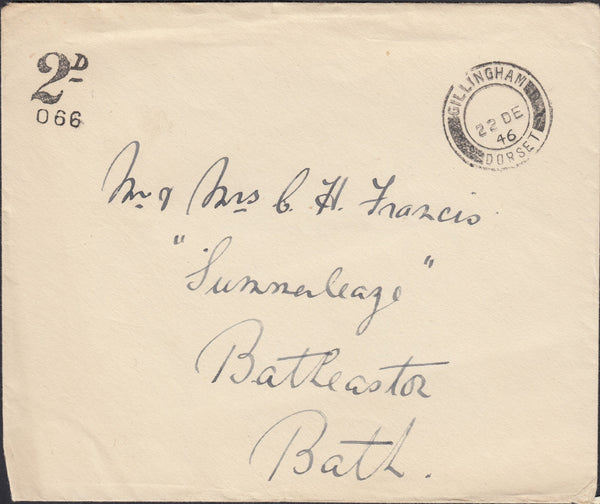 2D
066
GILLINGHAM
22 DE
46
DORSET
Mr & Mrs C. H. Francis
"Summerleaze"
Batheaston
Bath.